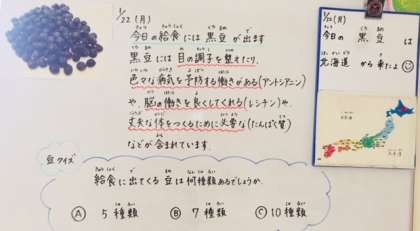 1/22(月)
今日の給食には黒豆が出ます
黒豆には目の調子を整えたり、
色々な病気を予防する働きがある(アントシアニン)
や、脳の働きを良くしてくれる(レシチン)や、
丈夫な体をつくるために必要な(たんぱく質)
などが含まれています。
豆クイズ
給食に出てくる豆は何種類あるでしょうか。
Ⓐ 5種類 Ⓑ 7種類 Ⓒ 10種類
1/22(月)
今日の黒豆は
北海道から来たよ